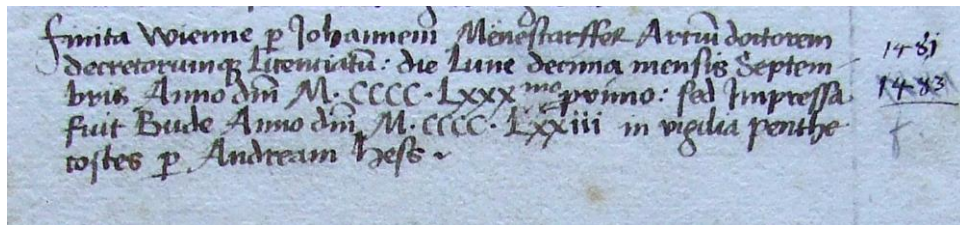 finita Wienne p Johannem Menestarffer Artiũ doctorem 1481
decretorumq̃ Licentiatũ: die Lune decima mensis Septem 1483
bris Anno dñi M·CCCC·Lxxx mo primo: sed Impressa
fuit Bude Anno dñi M·CCCC·Lxxiii in vigilia penthe
costes p Andream Hess